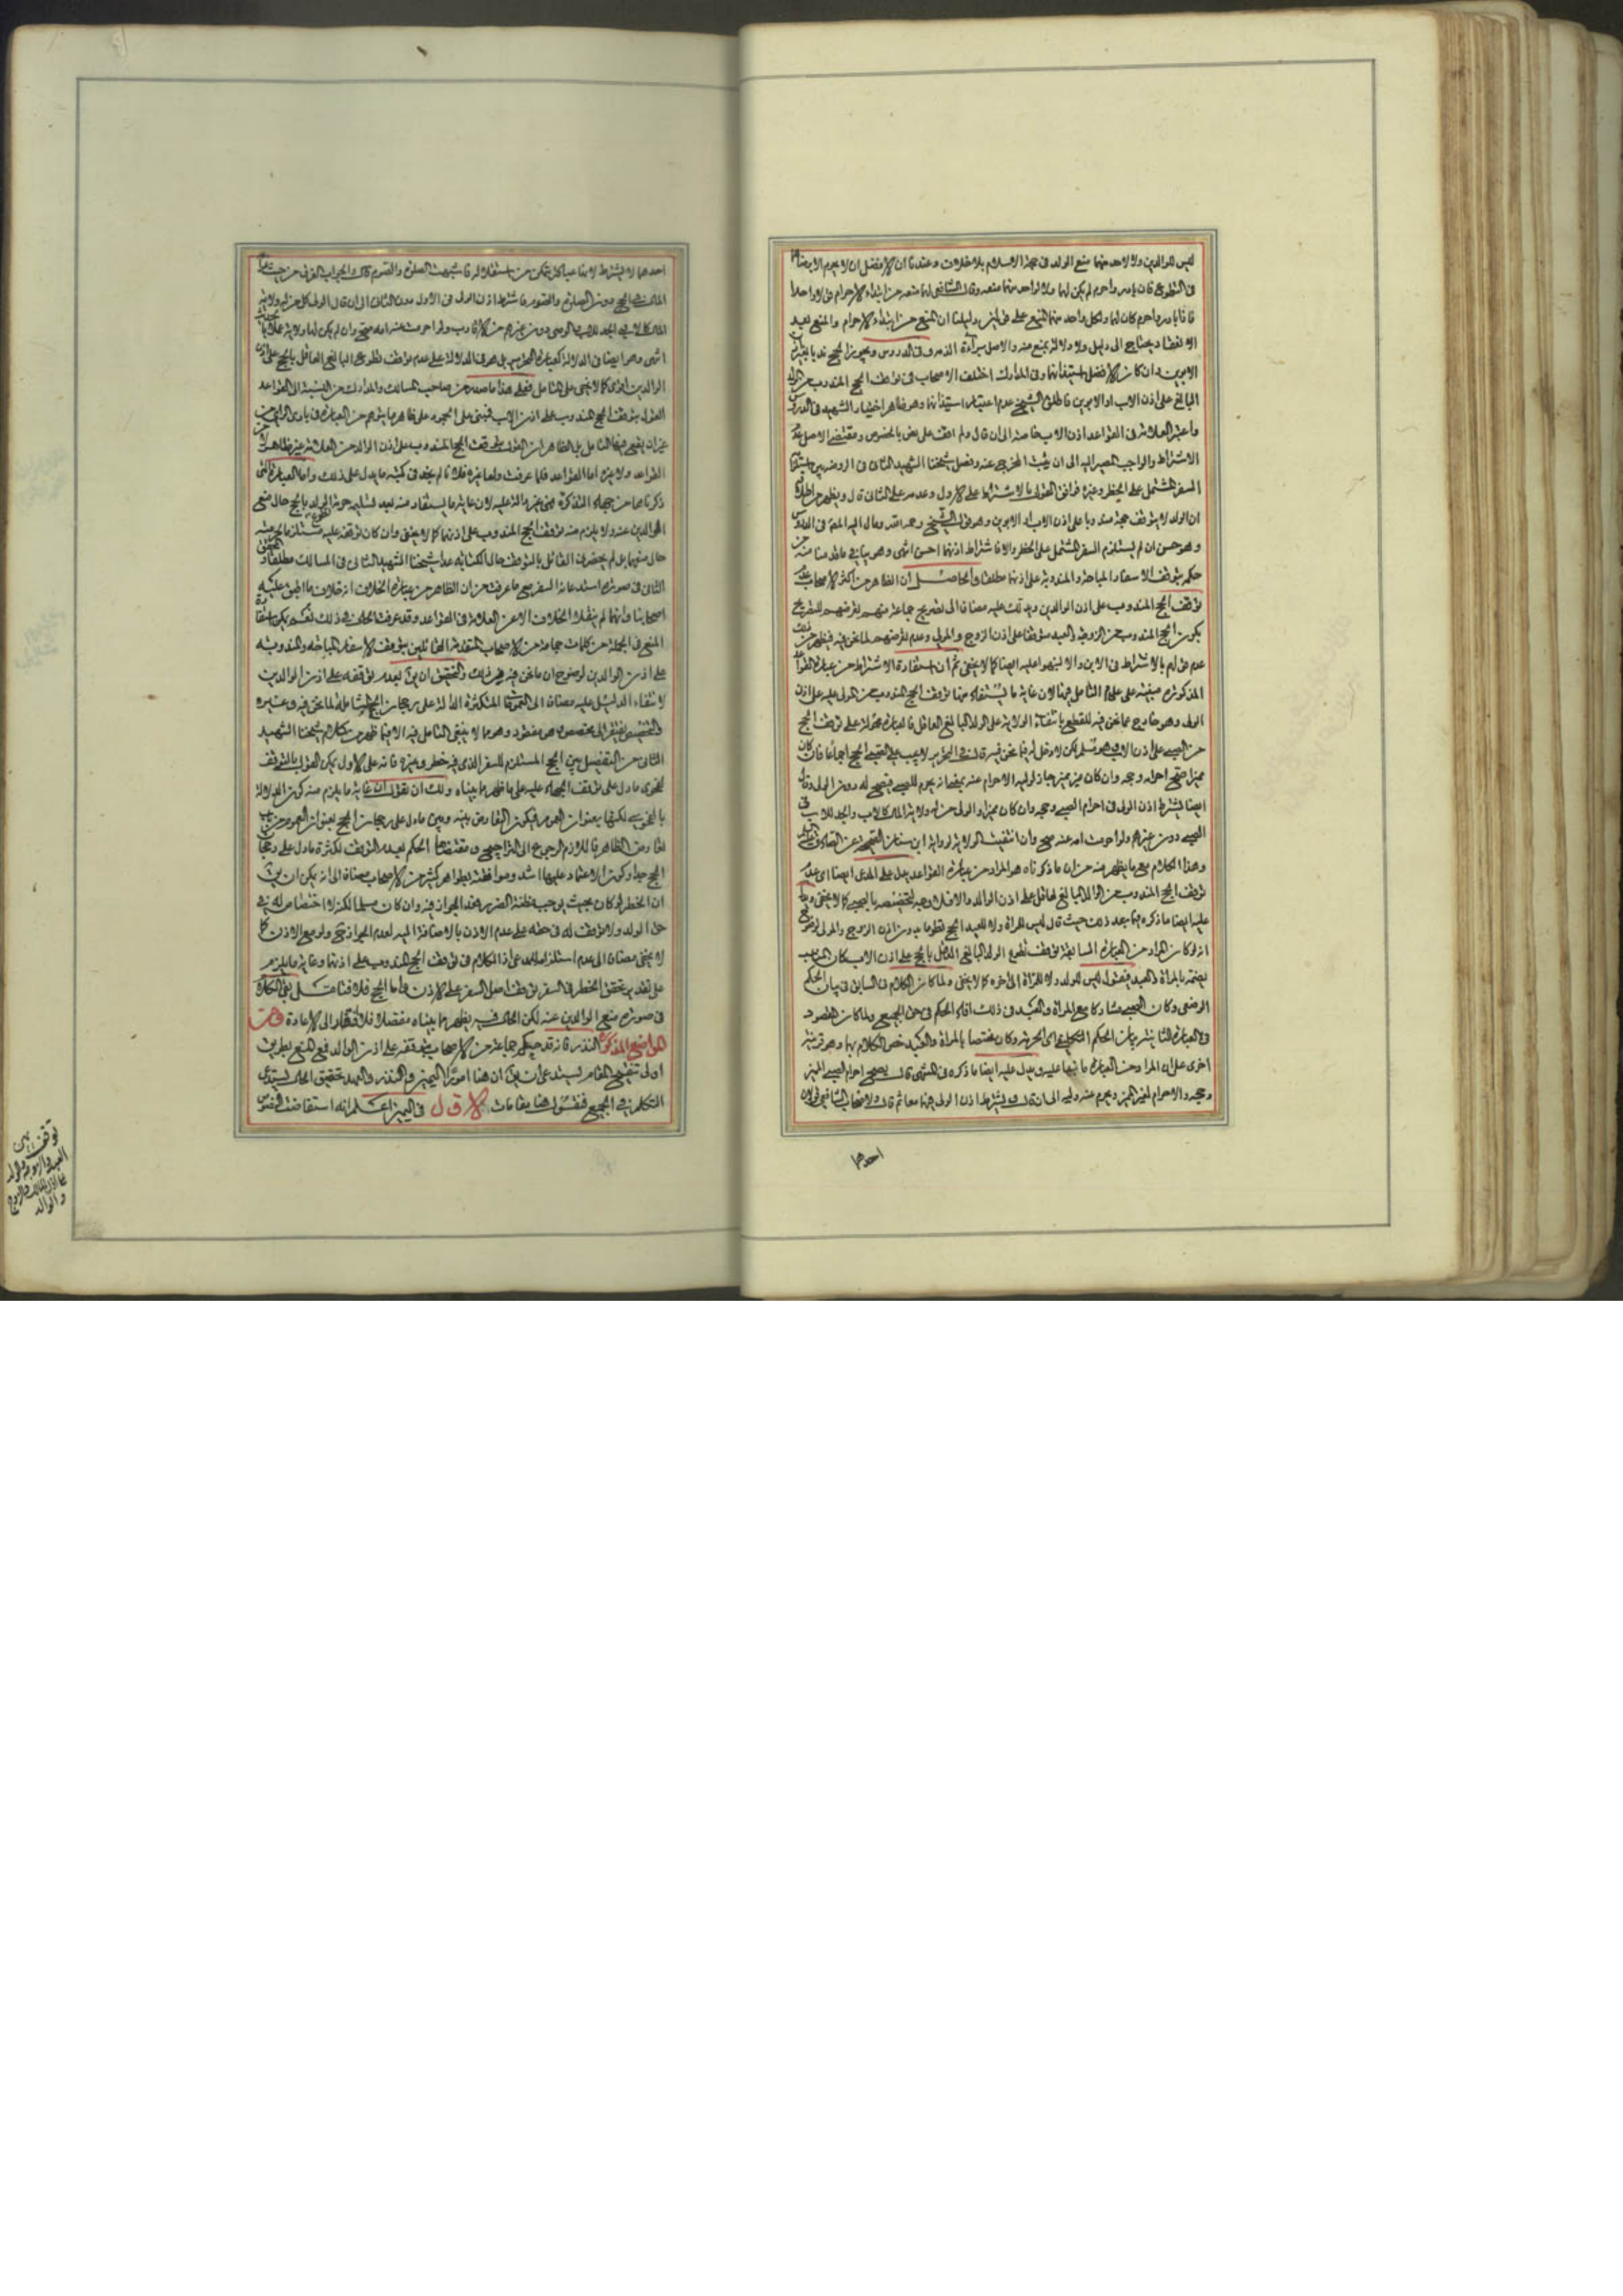 ليس للوالدين ولا لاحد منهما منع الولد فى حجة الاسلام بلا خلاف وعندنا ان الافضل ان لا يحرم الا برضاهما
فى التطوع فان بادر واحرم لم يكن لهما ولا لواحد منهما منعه وقال الشافعى لهما منعه من ابتداء الاحرام قولا واحدا
فاذا بادر واحرم كان لهما ولكل واحد منهما المنع على قولين دليلنا ان المنع من ابتداء الاحرام والمنع بعد
الانعقاد يحتاج الى دليل ولا دلالة تمنع منه والاصل براءة الذمة وفى الدروس ويجوز الحج ندبا بغير اذن
الابوين وان كان الافضل استيذانهما وفى المدارك اختلف الاصحاب فى توقف الحج المندوب من الولد
البالغ على اذن الاب او الابوين فاطلق الشيخ عدم اعتبار استيذانهما وهو ظاهر اختيار الشهيد فى الدروس
واعتبر العلامة فى القواعد اذن الاب خاصة الى ان قال ولم اقف على نص بالخصوص ومقتضى الاصل عدم
الاشتراط والواجب المصير اليه الى ان يثبت المخرج عنه وفصل شيخنا الشهيد الثانى فى الروضه بين استلزام
السفر المشتمل على الخطر وغيره فرافق القول بالاشتراط على الاول وعدمه على الثانى قال ويظهر من اطلاق
ان الولد لا يتوقف حجه مندوبا على اذن الاب او الابوين وهو قول الشيخ رحمه الله ومال اليه المصنف فى الدروس
وهو حسن ان لم يستلزم السفر المشتمل على الخطر والا فاشتراط اذنهما احسن انتهى وهو ينافى ما قدمنا منه من
حكمه بتوقف الاسفار المباحة والمندوبة على اذنهما مطلقا والحاصل ان الظاهر من اكثر الاصحاب عدم
توقف الحج المندوب على اذن الوالدين ويدلك عليه مضافا الى تصريح جماعة منهم تعرضهم للتصريح
بكون الحج المندوب من الزوجة والعبد متوقفا على اذن الزوج والمولى وعدم تعرضهم لما نحن فيه فيظهر من ذلك
عدم قولهم بالاشتراط فى الابن والا لنبهوا عليه ايضا كما لا يخفى ثم ان استفادة الاشتراط من عبارة القواعد
المذكورة مبنية على عدم التامل فيها لان غاية ما يستفاد منها توقف الحج المندوب من المولى عليه على اذن
الولى وهو خارج عما نحن فيه للقطع بانتفاء الولاية على الولد البالغ العاقل فالعبارة محمولة على توقف الحج
من الصبى على اذن الاب وهو مسلم لكن لا دخل له فيما نحن فيه قال فى التحرير لا يجب على الصبى الحج اجماعا فان كان
مميزا صح احرامه وحجه وان كان غير مميز جاز لوليه الاحرام عنه بمعنى انه يحرم للصبى فيصح له دون الولى وقال
ايضا يشترط اذن الولى فى احرام الصبى وحجه وان كان مميزا والولى من له ولاية المال كالاب والجد للاب فى
الصبى دون غيرهم ولو احرمت امه عنه صح وان انتفت الولاية لرواية ابن سنان الصحيحة عن الصادق عليه السلام
وهذا الكلام مع ما يظهر منه من ان ما ذكرناه هو المراد من عبارة القواعد يدل على المدعى ايضا اى عدم
توقف الحج المندوب من الولد البالغ العاقل على اذن الوالد والا فلا وجه لتخصيصه بالصبى كما لا يخفى ويدل
عليه ايضا ما ذكره بعد ذلك حيث قال ليس للمراة ولا للعبد الحج تطوعا بدون اذن الزوج والمولى لوضوح
انه لو كان المراد من العبارة السابقة توقف تطوع الولد البالغ العاقل بالحج على اذن الاب لكان المناسب
بضمه بالمراة والعبد فيقول ليس للولد ولا للمراة الى اخره كما لا يخفى ولما كان الكلام فى السابق فى بيان الحكم
الوضعى وكان الصبى مشاركا مع المراة والعبد فى ذلك افاد الحكم فى حق الجميع ولما كان المقصود
فى العبارة الثانية بيان الحكم التكليفى اى الحرمة وكان مختصا بالمراة والعبد خص الكلام بهما وهو قرينة
اخرى على ان المراد من العبارة ما نبهنا عليه ويدل عليه ايضا ما ذكره فى المنتهى قال يصح احرام الصبى المميز
وحجه والاحرام لغير المميز ويحرم عنه وليه الى ان قال ويشترط اذن الولى فيهما معا ثم قال ولاصحاب الشافعى قولان
احدهما
احدهما لا يشترط لانها عبادة يتمكن من استقلاله فاشبهت الصلوة والصوم قال والجواب الفرق من حيث لزوم
المال فى الحج دون الصلوة والصوم فاشترط اذن الولى فى الاول دون الثانى الى ان قال الولى كل من له ولاية
المال كالاب والجد للاب والوصى دون غيرهم من الاقارب ولو احرمت عنه امه صح وان لم يكن لها ولاية عملا
انتهى وهو ايضا فى الدلالة كعبارة التحرير بل هو فى الدلالة على عدم توقف تطوع البالغ العاقل بالحج على اذن
الوالدين اقوى كما لا يخفى على المتامل فعلى هذا ما صدر من صاحب المسالك والمدارك من النسبة الى القواعد
القول بتوقف الحج المندوب على اذن الاب فمبنى على الجمود على ظاهر ما يتوهم من العبارة فى بادى الراى من
غير ان يمعن فيها التامل بل الظاهر ان القول بتوقف الحج المندوب على اذن الوالد من العلامة غير ظاهر لا من
القواعد ولا غيره اما القواعد فلما عرفت واما غيره فلانا لم نجد فى كتبه ما يدل على ذلك واما العبارة التى
ذكرناها من جهاد التذكرة فهى غير دالة عليه لان غاية ما يستفاد منه بعد تسليمه حرمة تطوع الولد بالحج حال منع
الوالدين عنه ولا يلزم منه توقف الحج المندوب على اذنهما كما لا يخفى وان كان توقفه عليه مستلزما لحرمته
حال منعهما بل لم يحضرنى القائل بالتوقف حال الكتابة عدا شيخنا الشهيد الثانى فى المسالك مطلقا والمحقق
الثانى فى صورة استدعائه السفر مع ما عرفت من ان الظاهر من عبارة الخلاف انه خلاف ما اطبق عليه
اصحابنا وانهما لم ينقلا الخلاف الا عن العلامة فى القواعد وقد عرفت الحال فى ذلك نعم يمكن استفادة
المنع فى الجملة من كلمات جماعة من الاصحاب المتقدمة القائلين بتوقف الاسفار المباحة والمندوبه
على اذن الوالدين لوضوح ان ما نحن فيه من ذلك والتحقيق ان يق بعدم توقفه على اذن الوالدين
لانتفاء الدليل عليه مضافا الى العمومات المتكثرة الدالة على رجحان الحج الشاملة لما نحن فيه وغيره
والتخصيص يفتقر الى مخصص وهو مفقود وهو مما لا ينبغى التامل فيه الا فيما ظهر من كلام شيخنا الشهيد
الثانى من التفصيل بين الحج المستلزم للسفر الذى فيه خطر وغيره فانه على الاول يمكن القول بالتوقف
لفحوى ما دل على توقف الجهاد عليه على ما ظهر مما بيناه ولك ان تقول ان غاية ما يلزم منه كون الدلالة
بالفحوى لكنها بعنوان العموم فيكون التعارض بينه وبين ما دل على رجحان الحج بعنوان العموم من باب
تعارض الظاهر فاللازم الرجوع الى التراجيح ومقتضاها الحكم بعدم التوقف لكثرة ما دل على رجحان
الحج جدا وكون الاعتماد عليها اشد وموافقته لظواهر كثير من الاصحاب مضافا الى انه يمكن ان يق
ان الخطر لو كان بحيث يوجب مظنة الضرر فعدم الجواز فيه وان كان مسلما لكنه لا اختصاص له فى
حق الولد ولا توقف له فى حقه على عدم الاذن بالاضافة اليه لعدم الجواز حتى ولو مع الاذن كما
لا يخفى مضافا الى عدم استلزامه للمدعى اذ الكلام فى توقف الحج المندوب على اذنهما وغاية ما يلزم
على تقدير تحقق الخطر فى السفر توقف اصل السفر على الاذن واما الحج فلا فتامل بقى الكلام
فى صورة منع الوالدين عنه لكن الحال فيه يظهر مما بيناه مفصلا فلا افتقار الى الاعادة ومن
المواضع المذكورة النذر فانه قد حكم جماعة من الاصحاب بتوقفه على اذن الوالد فمع المنع بطريق
اولى تنقيح المقام يستدعى ان يق ان هنا امورا اليمين والنذر والعهد تحقيق الحال يستدعى
التكلم فى الجميع فنقول هنا مقامات الاول فى اليمين اعلم انه استفاضت النصوص
توقف يمين
العبد والزوجة والولد
على اذن المالك والزوج
والوالد